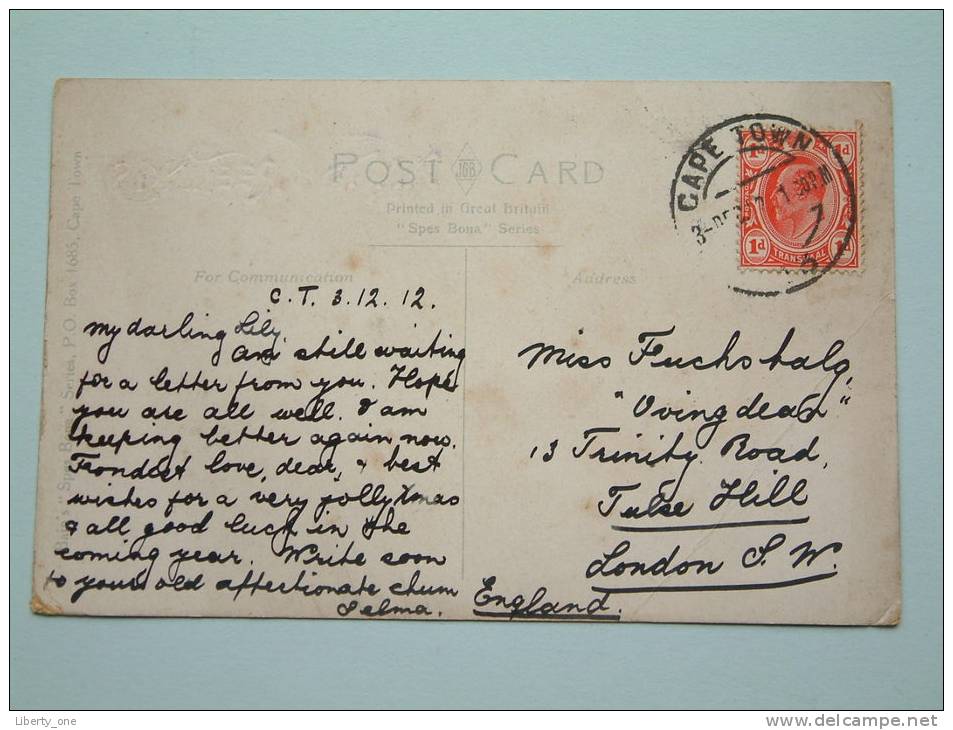 POST CARD
JGB
Printed in Great Britain
"Spes Bona" Series
For Communication
Address
Series, P.O. Box 1685, Cape Town
"Spes Bona"
C.T. 3.12.12.
My darling Lily,
Am still waiting
for a letter from you. Hope
you are all well. I am
keeping better again now.
Fondest love, dear, & best
wishes for a very jolly Xmas
& all good luck in the
coming year. Write soon
to your old affectionate chum
Selma.
CAPE TOWN
1d 1d
1d TRANSVAAL
Miss Fuchsbalg,
"Ovingdean"
13 Trinity Road,
Tulse Hill
London S.W.
England.
Liberty_one
delcampe.net